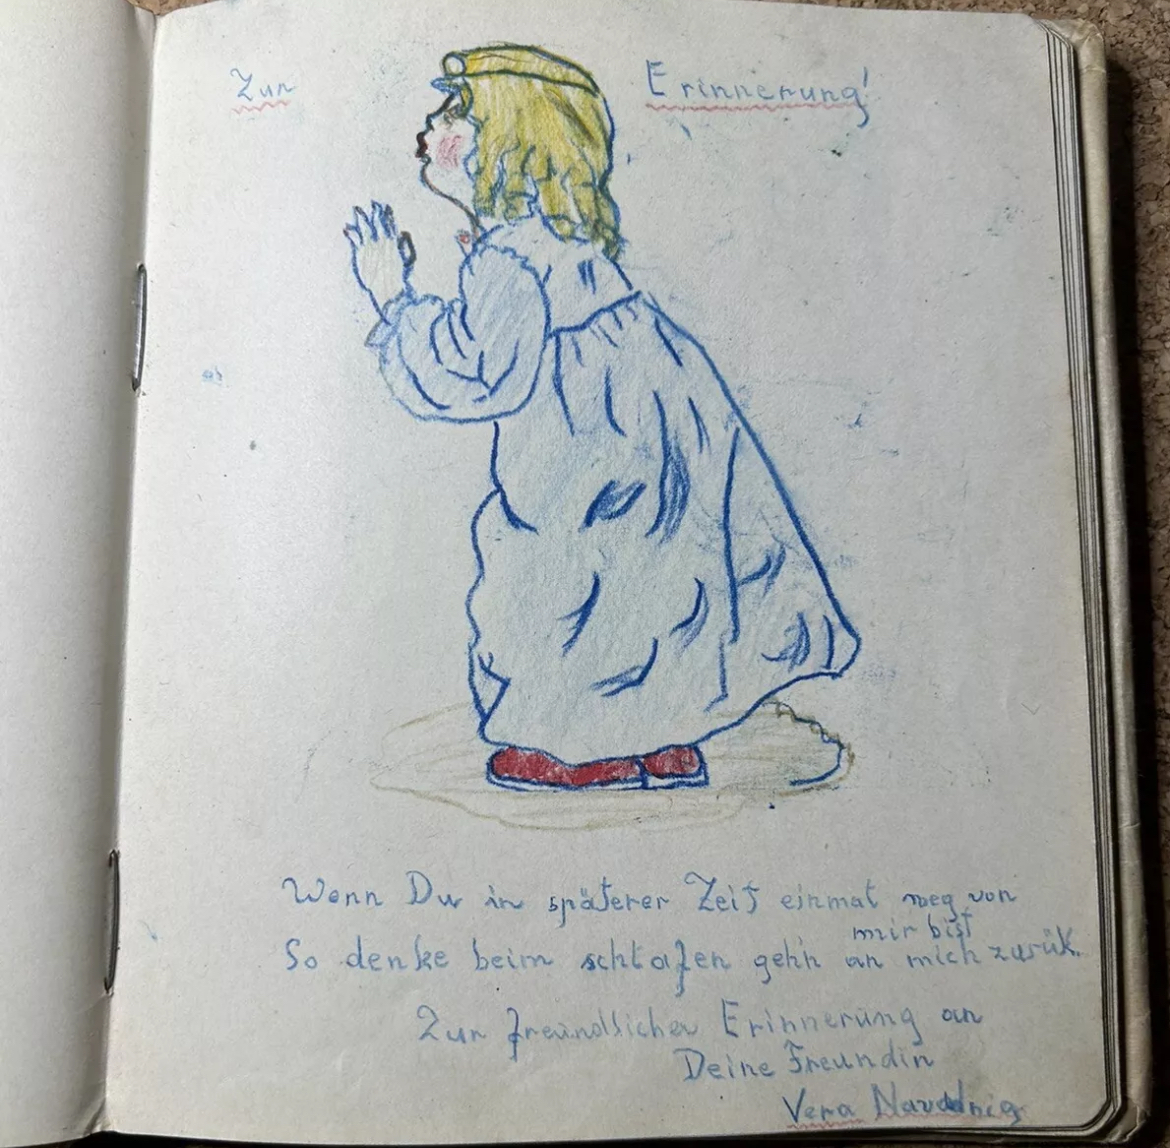 Zur Erinnerung!
Wenn Du in späterer Zeit einmal weg von
mir bist
So denke beim schlafen gehn an mich zurük.
Zur freundlichen Erinnerung an
Deine Freundin
Vera